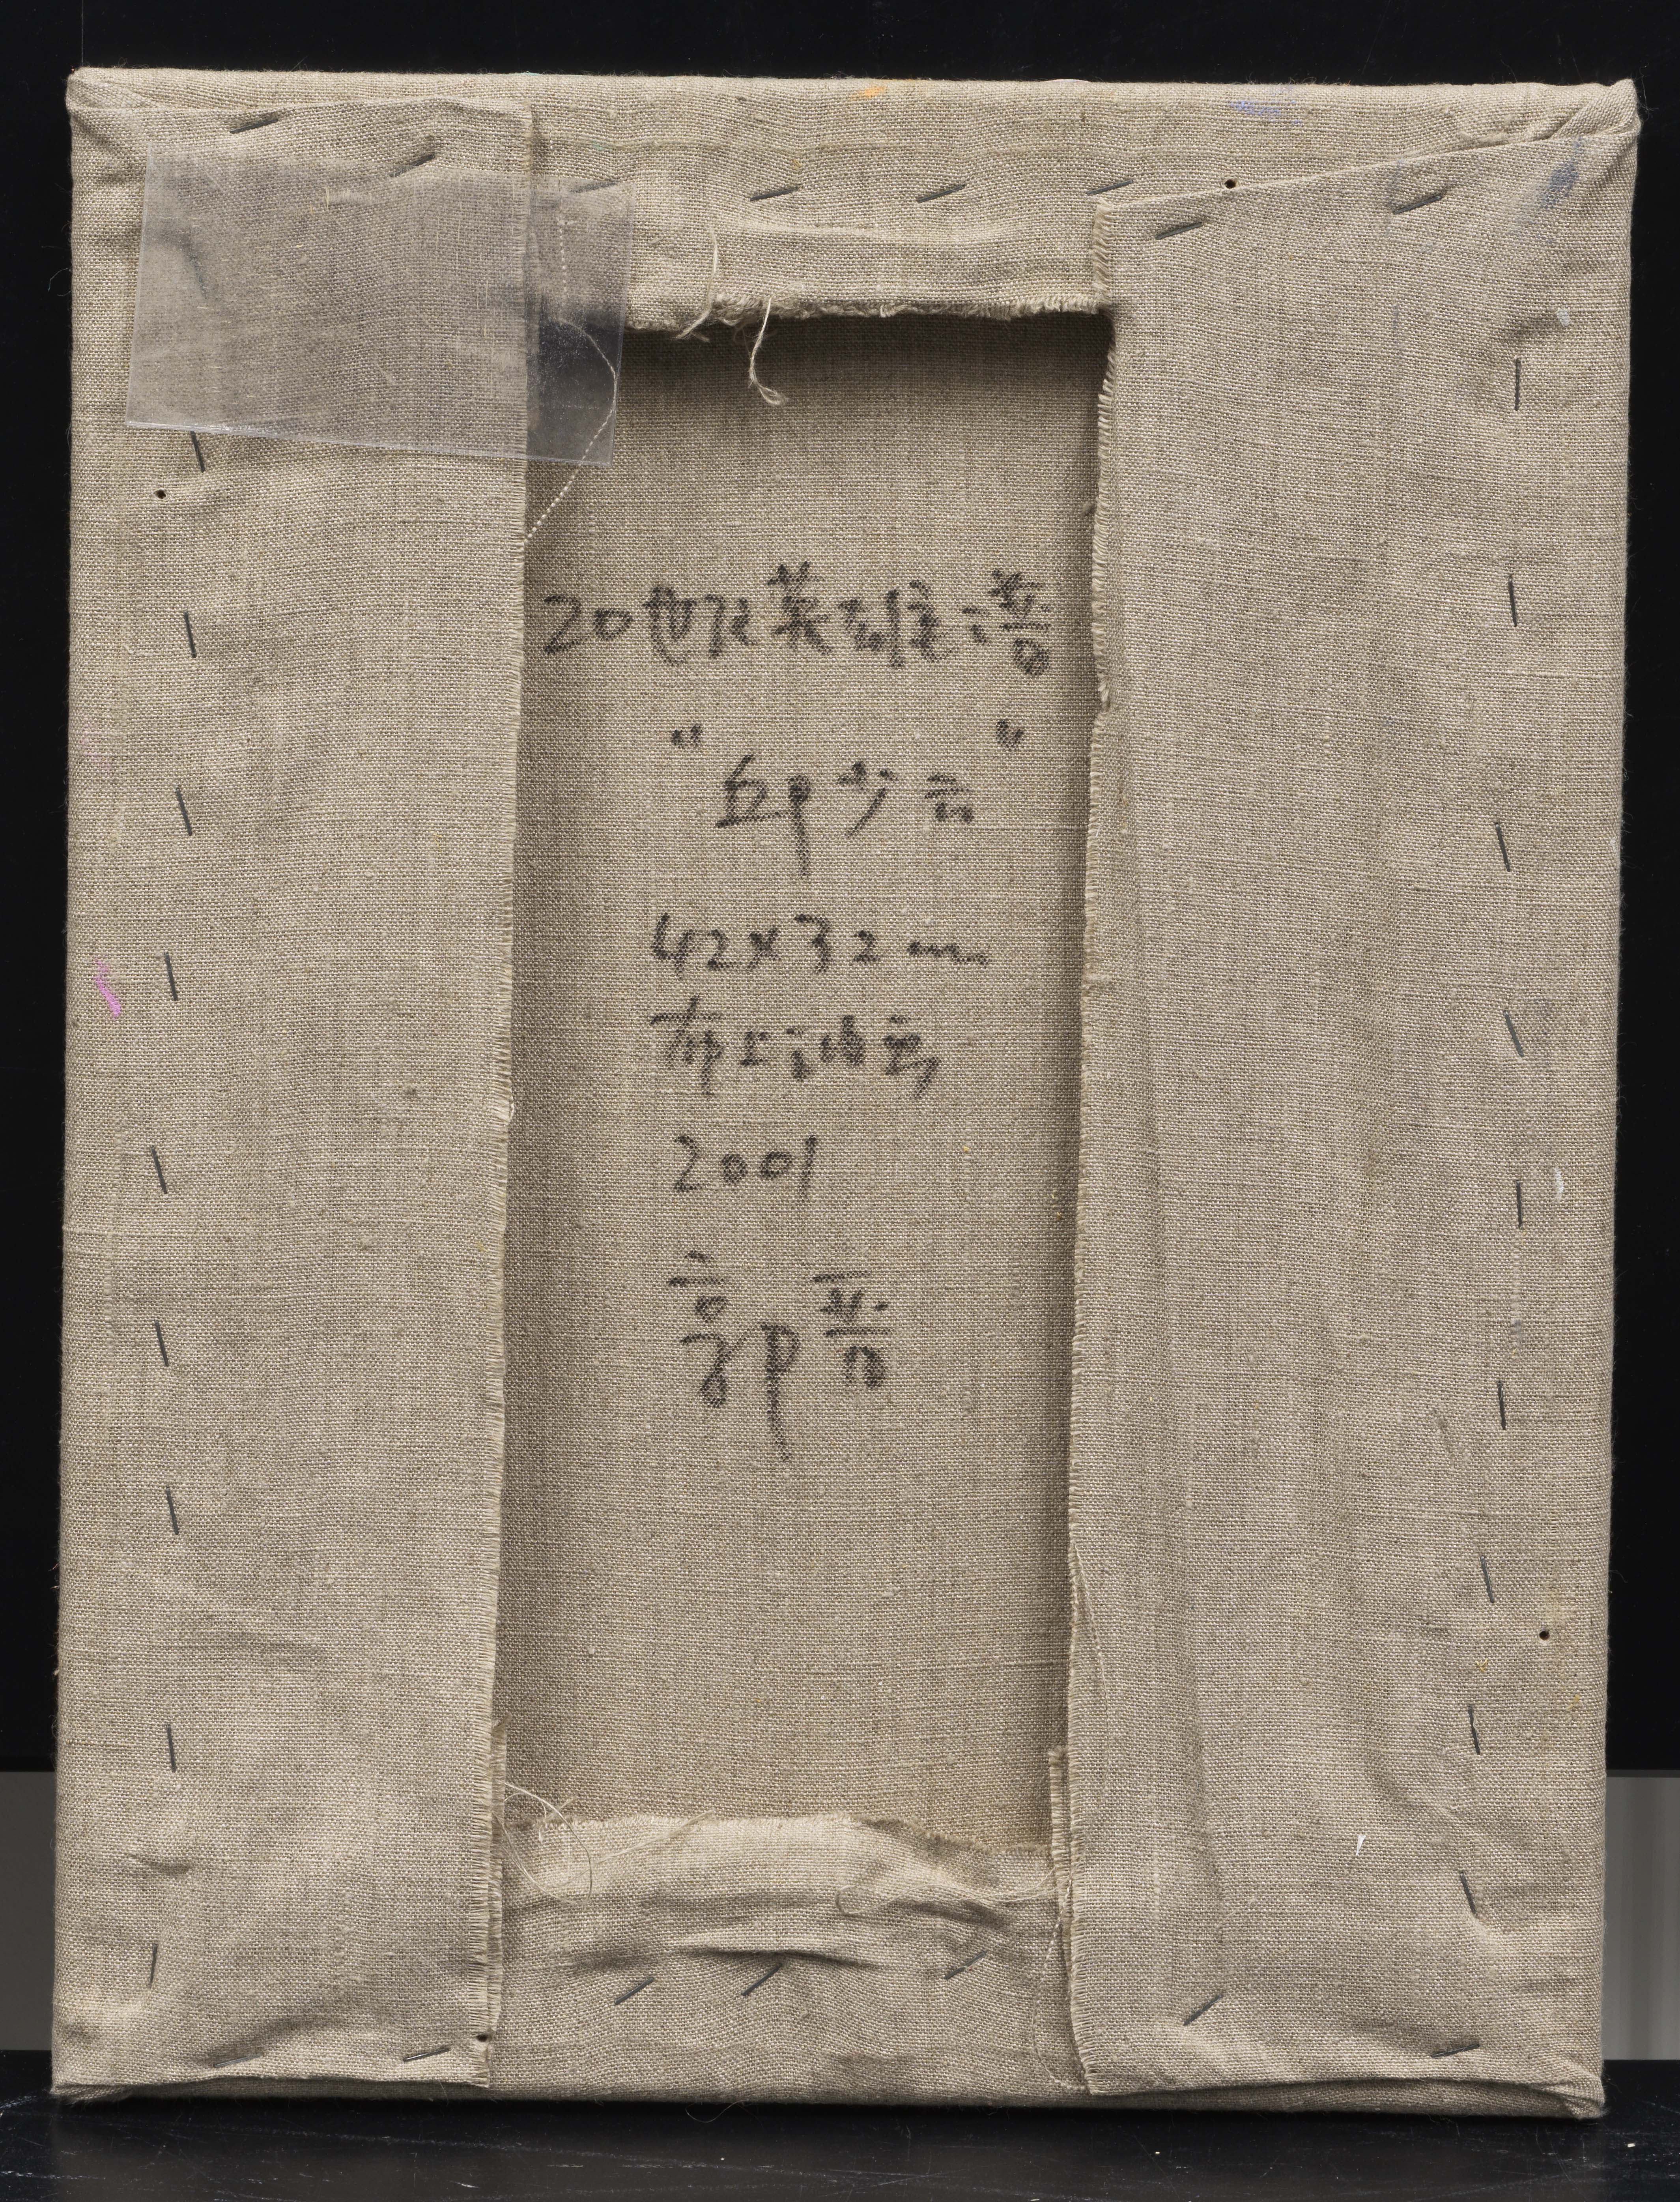 20世纪英雄谱
“邱少云”
42x32cm
布上油画
2001
郭晋